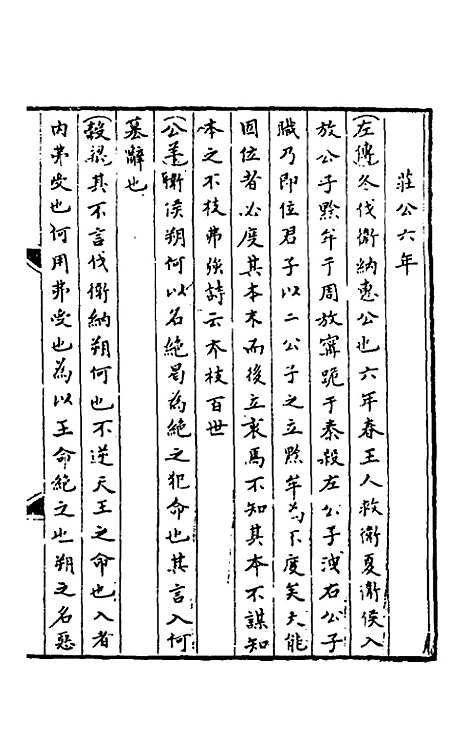 莊公六年
(左傳冬伐衛納惠公也六年春王人救衛夏衛侯入
放公子黔牟于周放甯跪于秦殺左公子洩右公子
職乃即位君子以二公子之立黔牟為不度矣夫能
固位者必度其本末而後立衷焉不知其本不謀知
本之不枝弗強詩云本枝百世
(公羊衛侯朔何以名絕曷為絕之犯命也其言入何
篡辭也
(穀梁其不言伐衛納朔何也不逆天王之命也入者
內弗受也何用弗受也為以王命絕之也朔之名惡